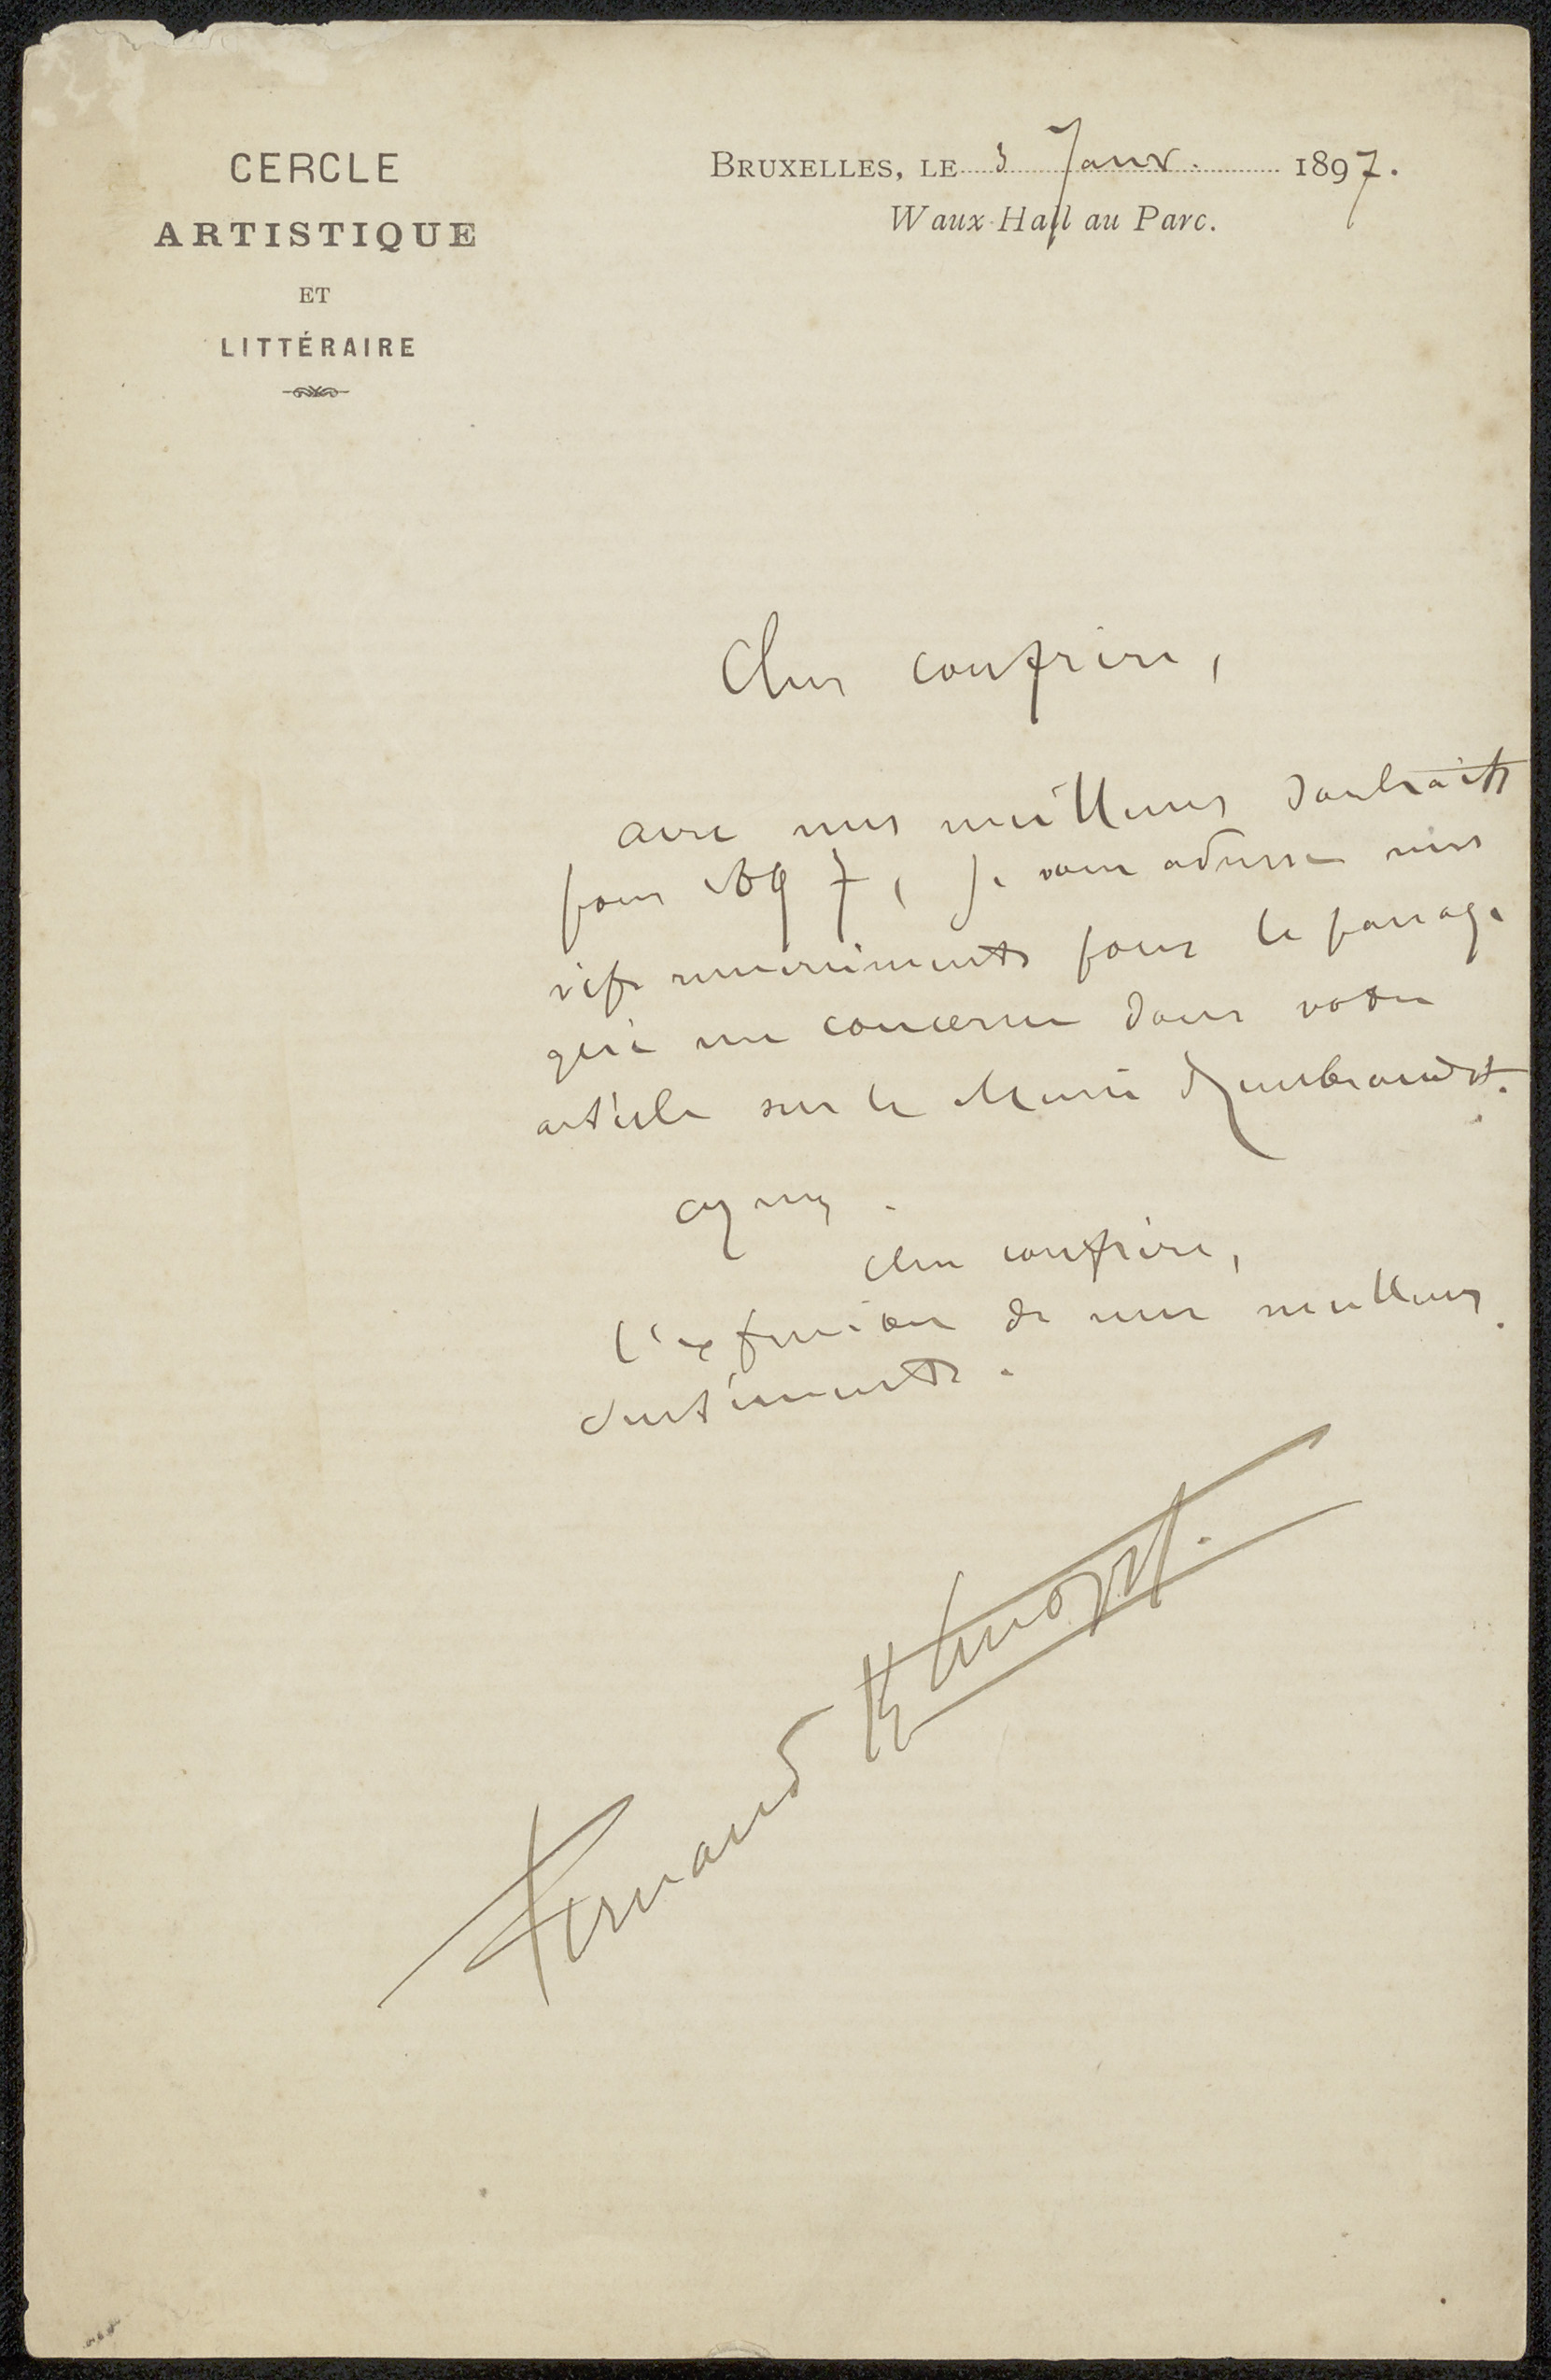 CERCLE
ARTISTIQUE
ET
LITTÉRAIRE
BRUXELLES, LE 3 Janv. 1897.
Waux-Hall au Parc.
Cher confrère,
avec mes meilleurs souhaits
pour 1897, je vous adresse mes
vifs remerciements pour le passage
qui me concerne dans votre
article sur le Musée Rembrandt.
agréez.
cher confrère,
l'expression de mes meilleurs
sentiments.
Fernand Khnopff.